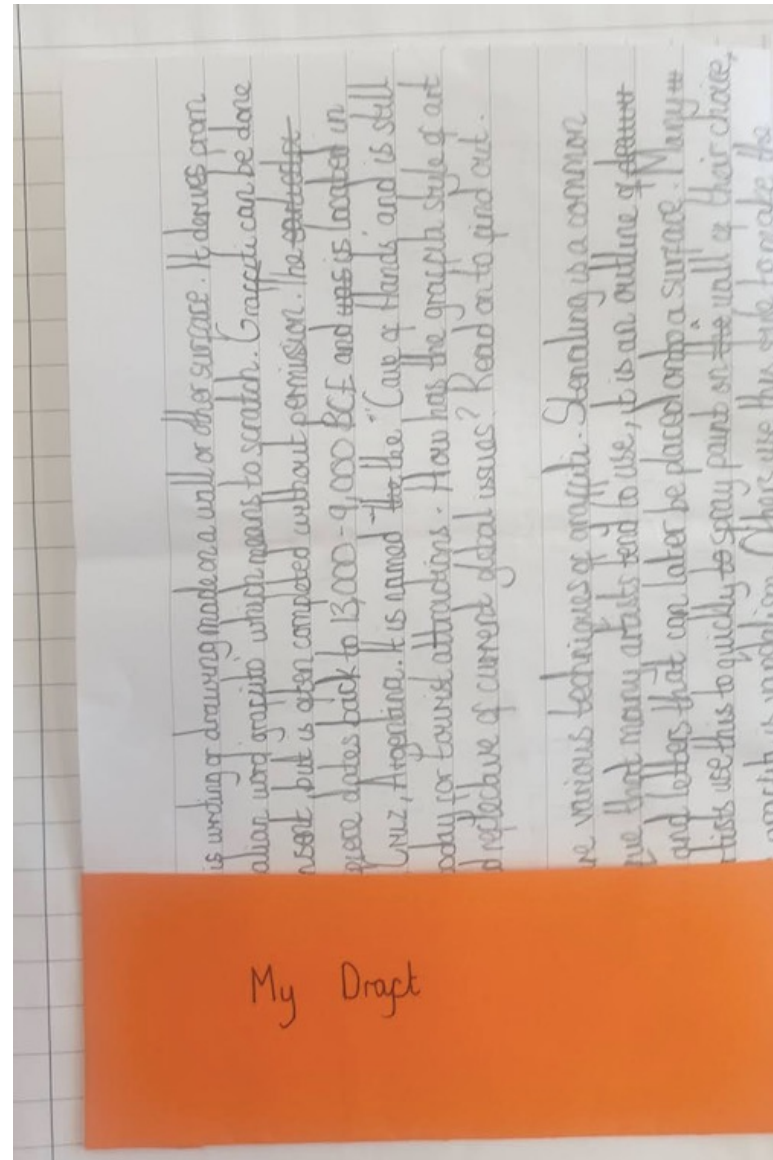 My Draft
is writing or drawing made on a wall or other surface. It derives from
alian word graffito' which means to scratch. Graffiti can be done
nsent, but is often completed without permission. The
piece dates back to 13,000-9,000 BCE and is located in
Cruz, Argentina. It is named the "Cave of Hands' and is still
oday for tourist attractions. How has the graffiti style of art
d reflective of current global issues? Read on to find out.
re various techniques of graffiti. Stenciling is a common
que that many artists tend to use, it is an outline of
and letters that can later be placed onto a surface. Many
rtists use this to quickly to spray paint on a wall of their choice,
graffiti is vandalism. Others use this style to make the